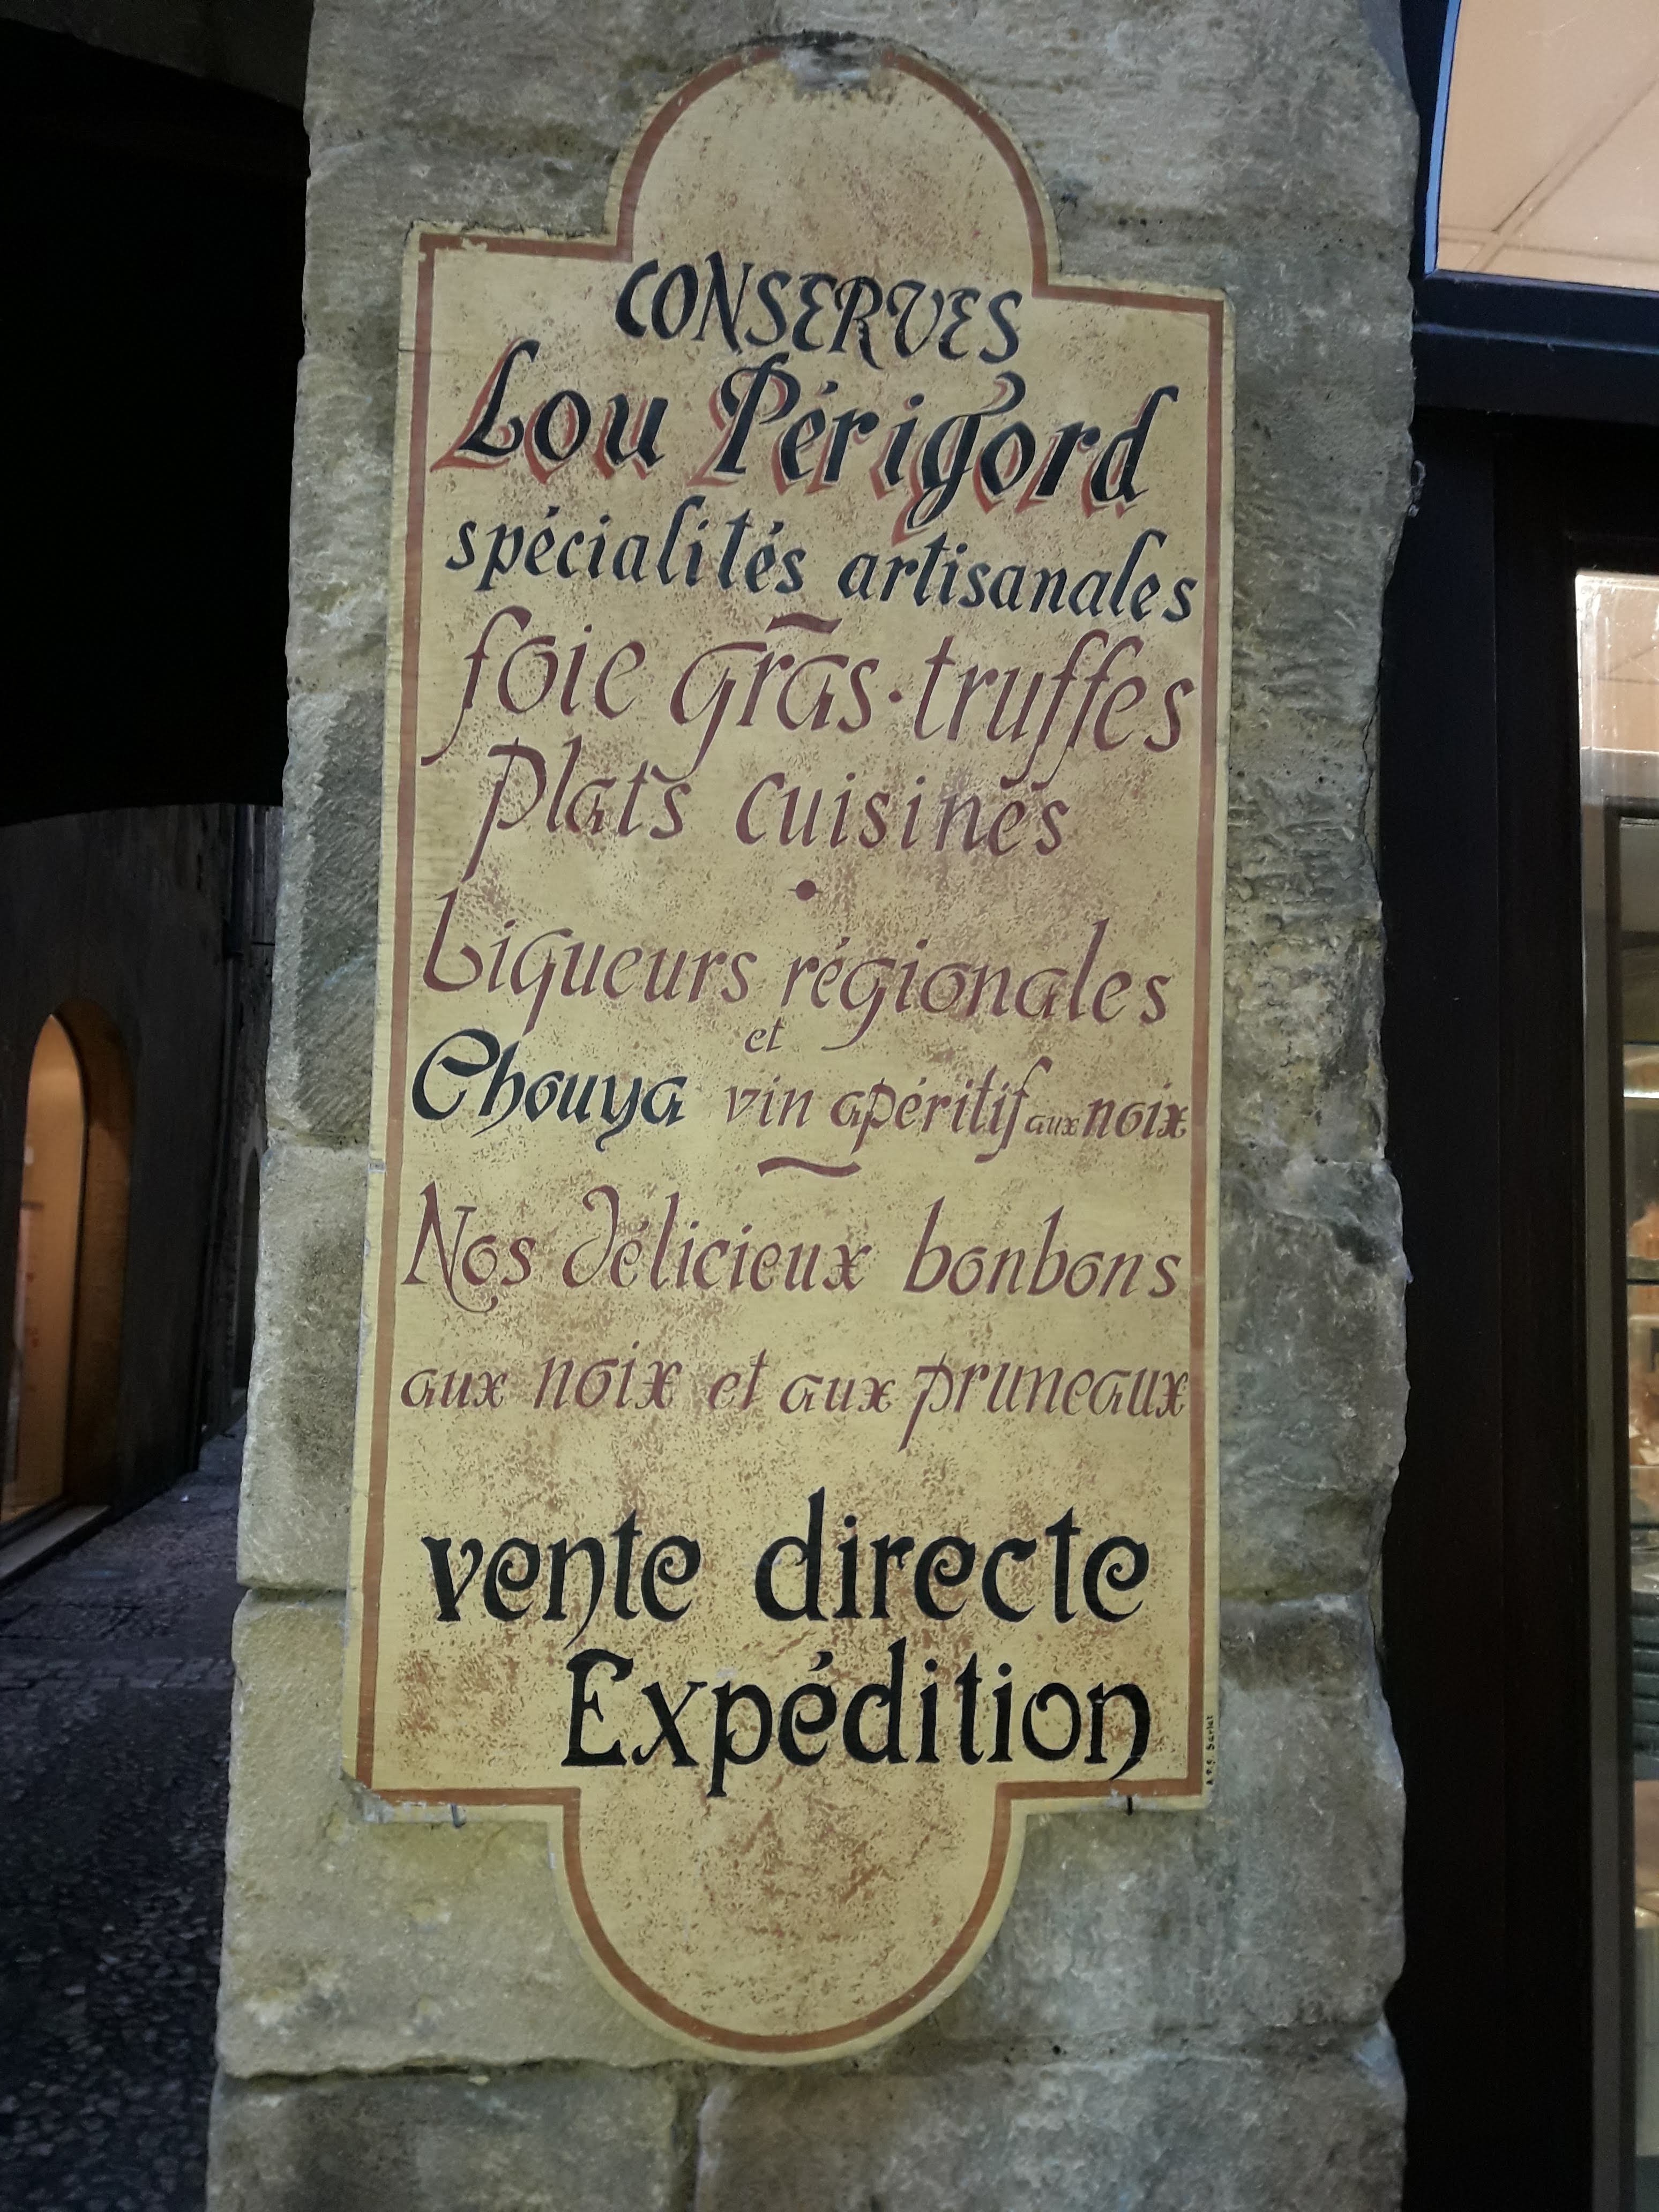 CONSERVES
Lou Périgord
spécialités artisanales
foie gras · truffes
Plats cuisinés
Liqueurs régionales
et
Chouya vin apéritif aux noix
Nos délicieux bonbons
aux noix et aux pruneaux
vente directe
Expédition
Sarlat